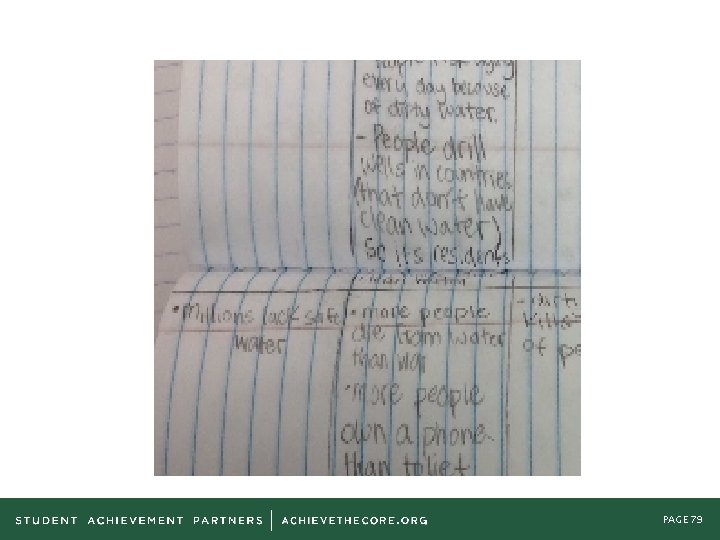 every day because
of dirty water.
- People drill
wells in countries
(that don't have
clean water)
So its residents
•Millions lack safe
water
• more people
die from water
than war
•more people
own a phone
than toliet
- dirt
kills
of pe
STUDENT ACHIEVEMENT PARTNERS | ACHIEVETHECORE.ORG
PAGE 79